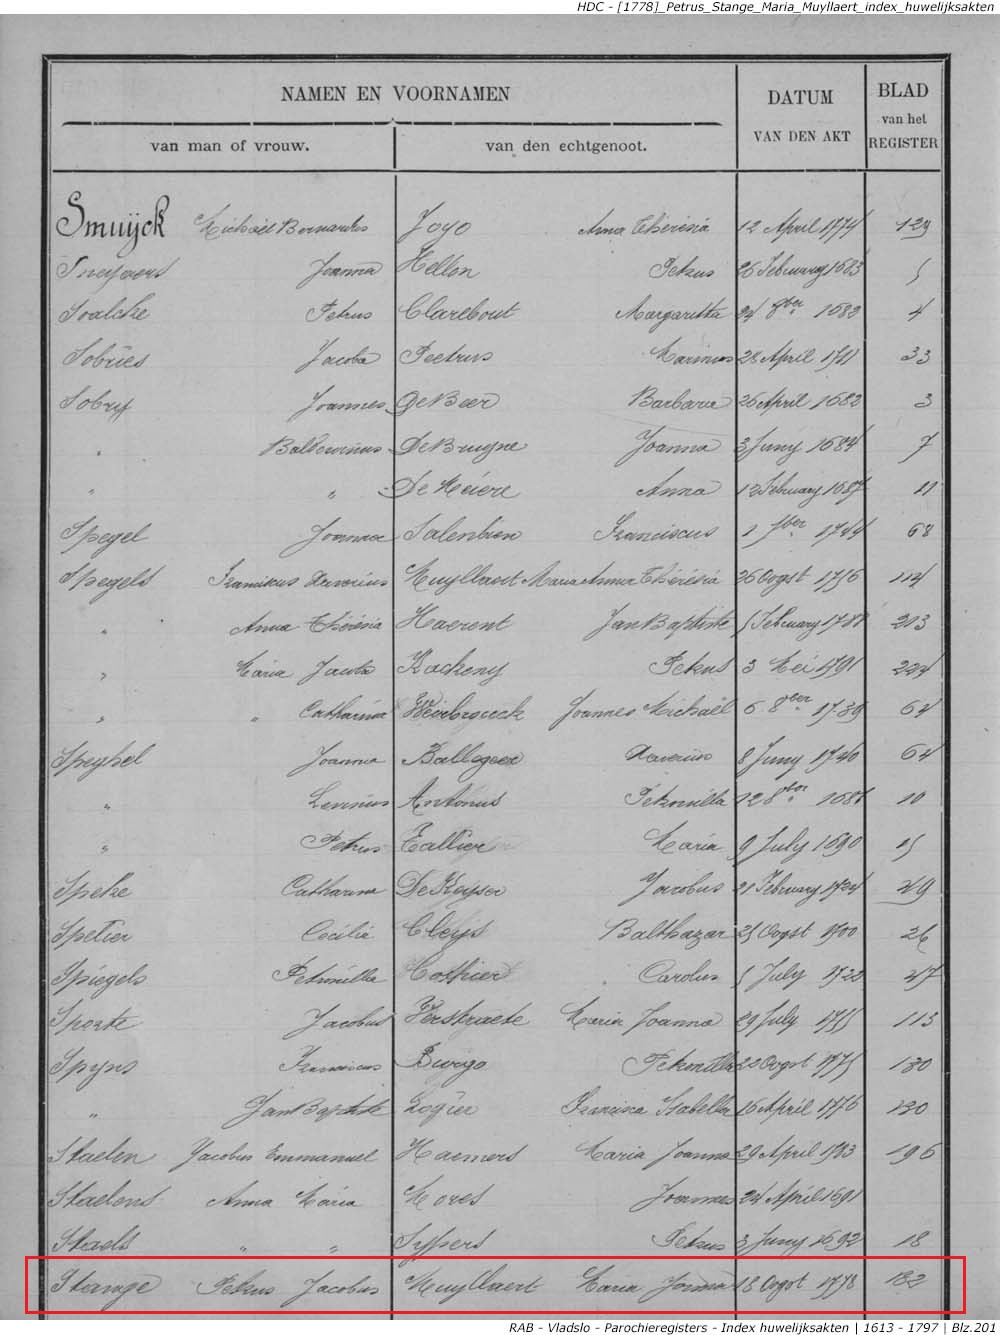 HDC - [1778]_Petrus_Stange_Maria_Muyllaert_index_huwelijksakten
NAMEN EN VOORNAMEN DATUM BLAD
van man of vrouw. van den echtgenoot. VAN DEN AKT van het REGISTER
Smuijck Michaël Bernardus Joyo Anna Thérésia 12 April 1774 129
Joanna Hellon Petrus 26 February 1683 5
Soalcke Petrus Clarebout Margaritta 24 8ber 1683 4
Sobries Jacoba Peetrus Marinus 28 April 1711 33
Sobry Joannes De Beer Barbara 26 April 1682 3
" Balduvinus De Bruyne Joanna 3 Juny 1684 7
" " De Meiere Anna 12 February 1687 11
Spegel Joanna Salenbien Franciscus 1 7ber 1744 68
Spegels Franciscus Xaverius Muyllaert Maria Anna Thérésia 26 Oogst 1756 114
" Anna Thérésia Haerent Jan Baptiste 5 February 1788 213
" Maria Jacoba Kockeny Petrus 3 Mei 1791 224
" " Catharina Joannes Michaël 6 8ber 1739 64
Speghel Joanna Ballegeer Xaverius 8 Juny 1740 64
" Levinus Antonus Petronilla 12 8ber 1686 10
" Petrus Tallier Maria 9 July 1690 15
Speke Catharina De Keyser Jacobus 21 February 1724 49
Spetier Cecilia Cleijs Balthazar 25 Oogst 1700 26
Spiegels Petronilla Cothier Carolus 5 July 1722 47
Sporte Jacobus Verstraete Maria Joanna 29 July 1755 113
Spyns Franciscus Burgo Petronilla 22 Oogst 1775 130
" Jan Baptiste Logier Francisca Isabella 16 April 1776 130
Staelen Jacobus Emmanuel Haemers Maria Joanna 29 April 1783 196
Staelens Anna Maria Mores Joannes 24 April 1691
Staels " " Sypers Petrus 3 Juny 1692 18
Stange Petrus Jacobus Muyllaert Maria Joanna 18 Oogst 1778 182
RAB - Vladslo - Parochieregisters - Index huwelijksakten | 1613 - 1797 | Blz.201